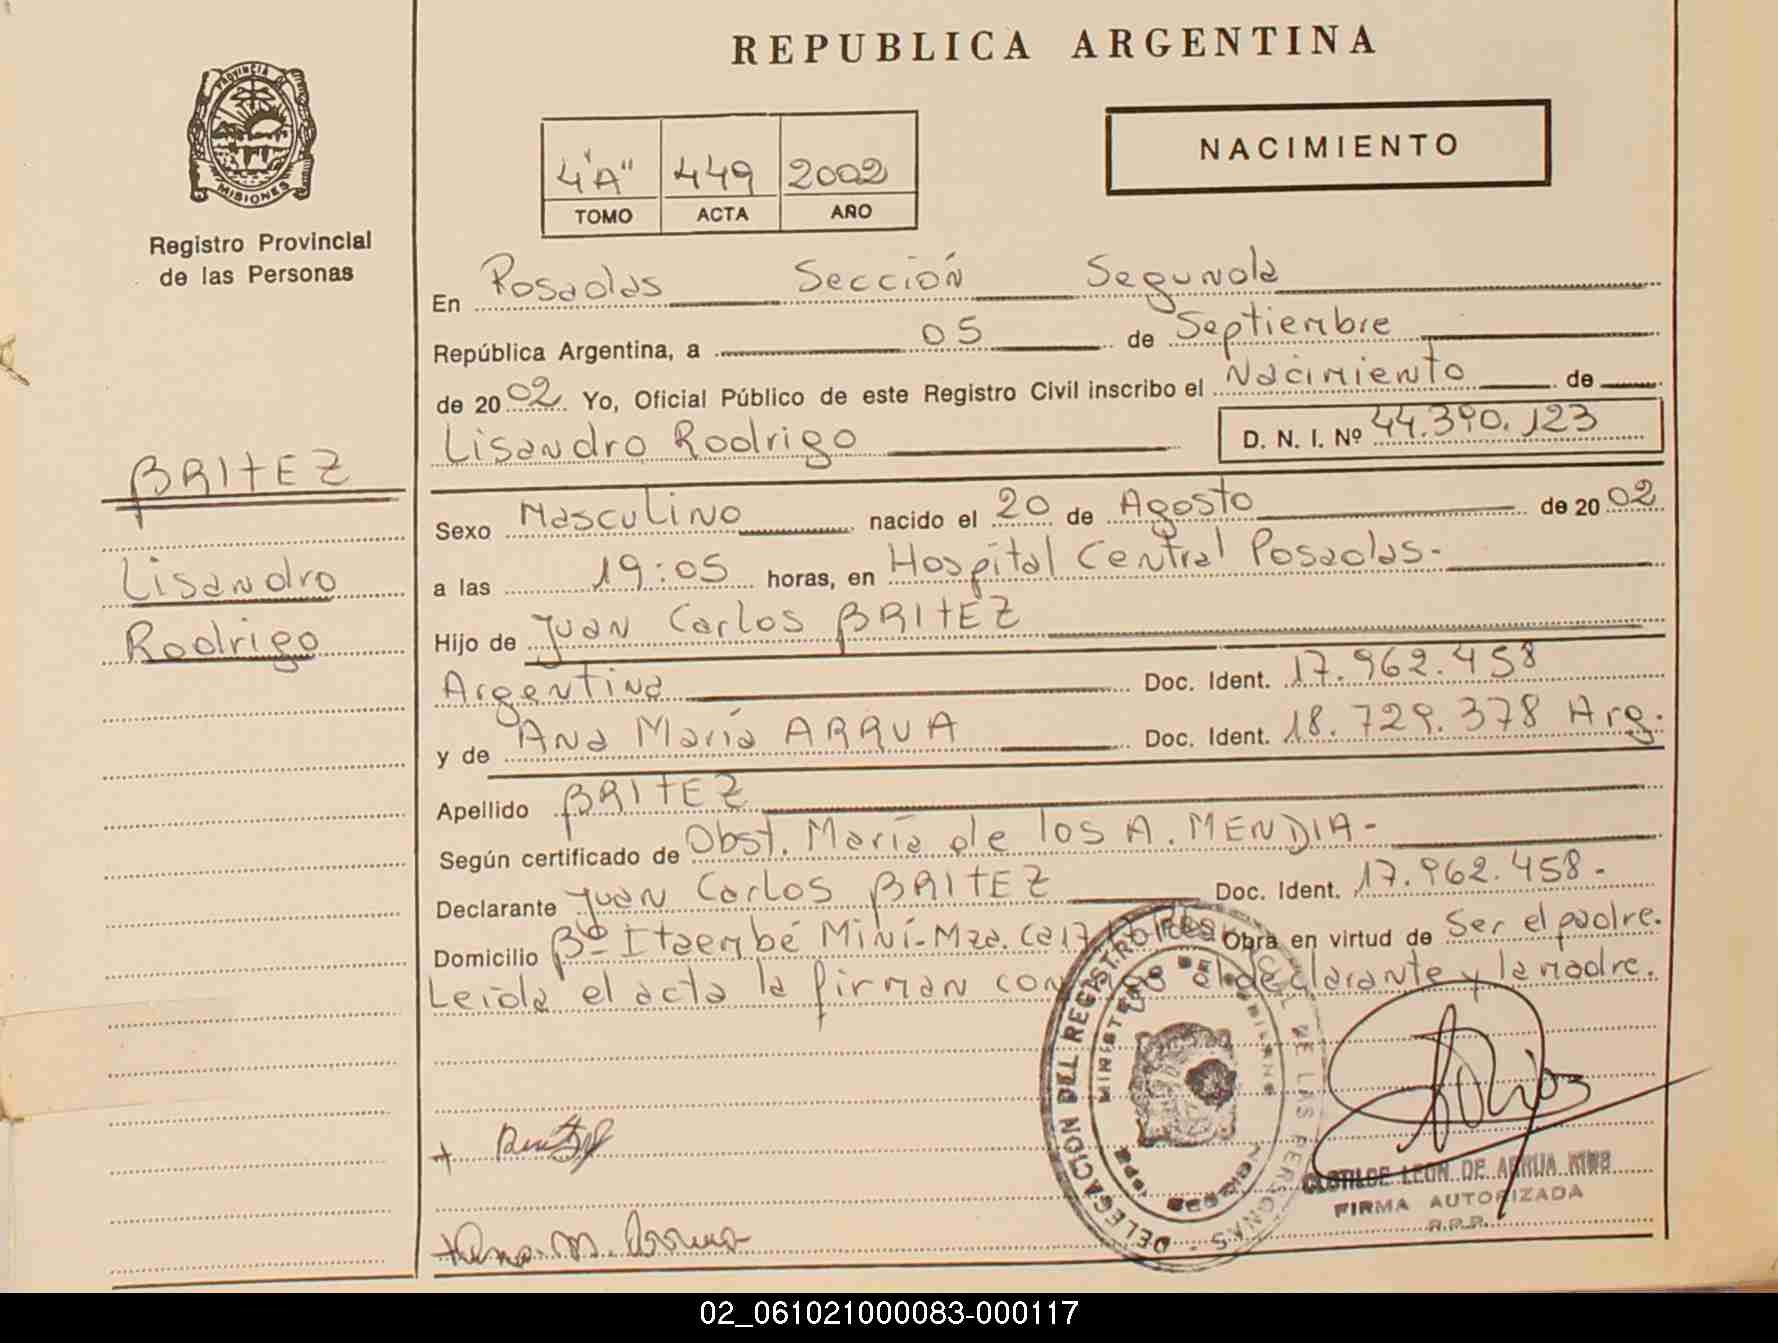 REPUBLICA ARGENTINA
PROVINCIA DE
MISIONES
Registro Provincial
de las Personas
4"A" 449 2002
TOMO ACTA AÑO
NACIMIENTO
BRITEZ
Lisandro
Rodrigo
En Posadas Sección Segunda
República Argentina, a 05 de Septiembre
de 2002 Yo, Oficial Público de este Registro Civil inscribo el Nacimiento de
Lisandro Rodrigo D. N. I. Nº 44.390.123
Sexo Masculino nacido el 20 de Agosto de 2002
a las 19:05 horas, en Hospital Central Posadas.
Hijo de Juan Carlos BRITEZ
Argentina Doc. Ident. 17.962.458
y de Ana María ARRUA Doc. Ident. 18.729.378 Arg.
Apellido BRITEZ
Según certificado de Obst. María de los A. MENDIA-
Declarante Juan Carlos BRITEZ Doc. Ident. 17.962.458.
Domicilio Bº Itaembé Miní-Mza. Obra en virtud de Ser el padre.
Leída el acta la firman declarante y la madre.
DELEGACION DEL REGISTRO DE LAS PERSONAS
Ana M. Arrua
CLOTILDE LEON DE
FIRMA AUTORIZADA
R.P.P.
02_061021000083-000117